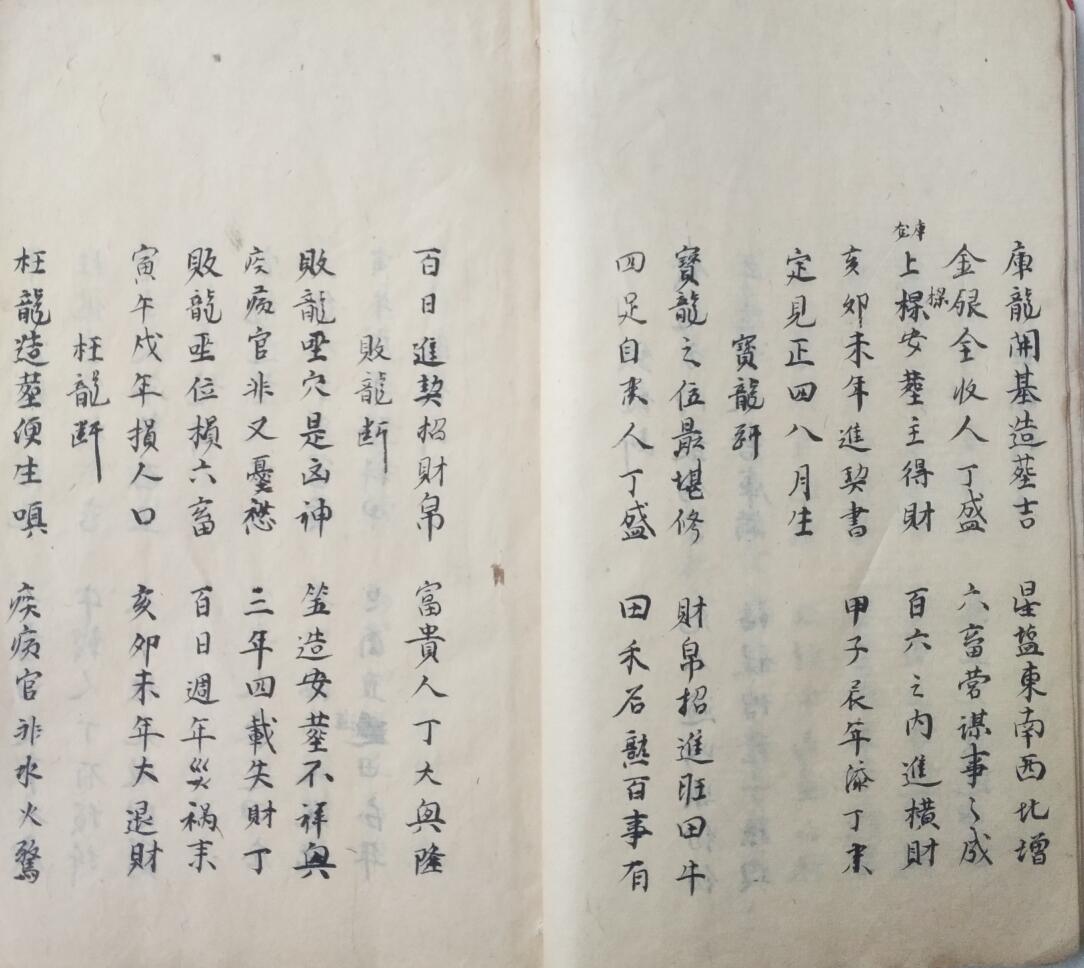 庫龍開基造塟吉 星盐東南西北增
金銀全收人丁盛 六畜营谋事〻成
在庫上樑安塟主得財 百六之内進横財
亥卯未年進契書 甲子辰年添丁来
定見正四八月生
寳龍
寳龍之位最堪修 財帛招進旺田牛
四足自来人丁盛 田禾石熟百事有
百日進契招財帛 富貴人丁大興隆
敗龍断
敗龍垩穴是凶神 造安塟不祥興
疾病官非又憂愁 三年四載失財丁
敗龍垩位損六畜 百日週年災禍来
寅午戌年損人口 亥卯未年大退財
枉龍断
枉龍造塟便生嗔 疾病官非水火驚